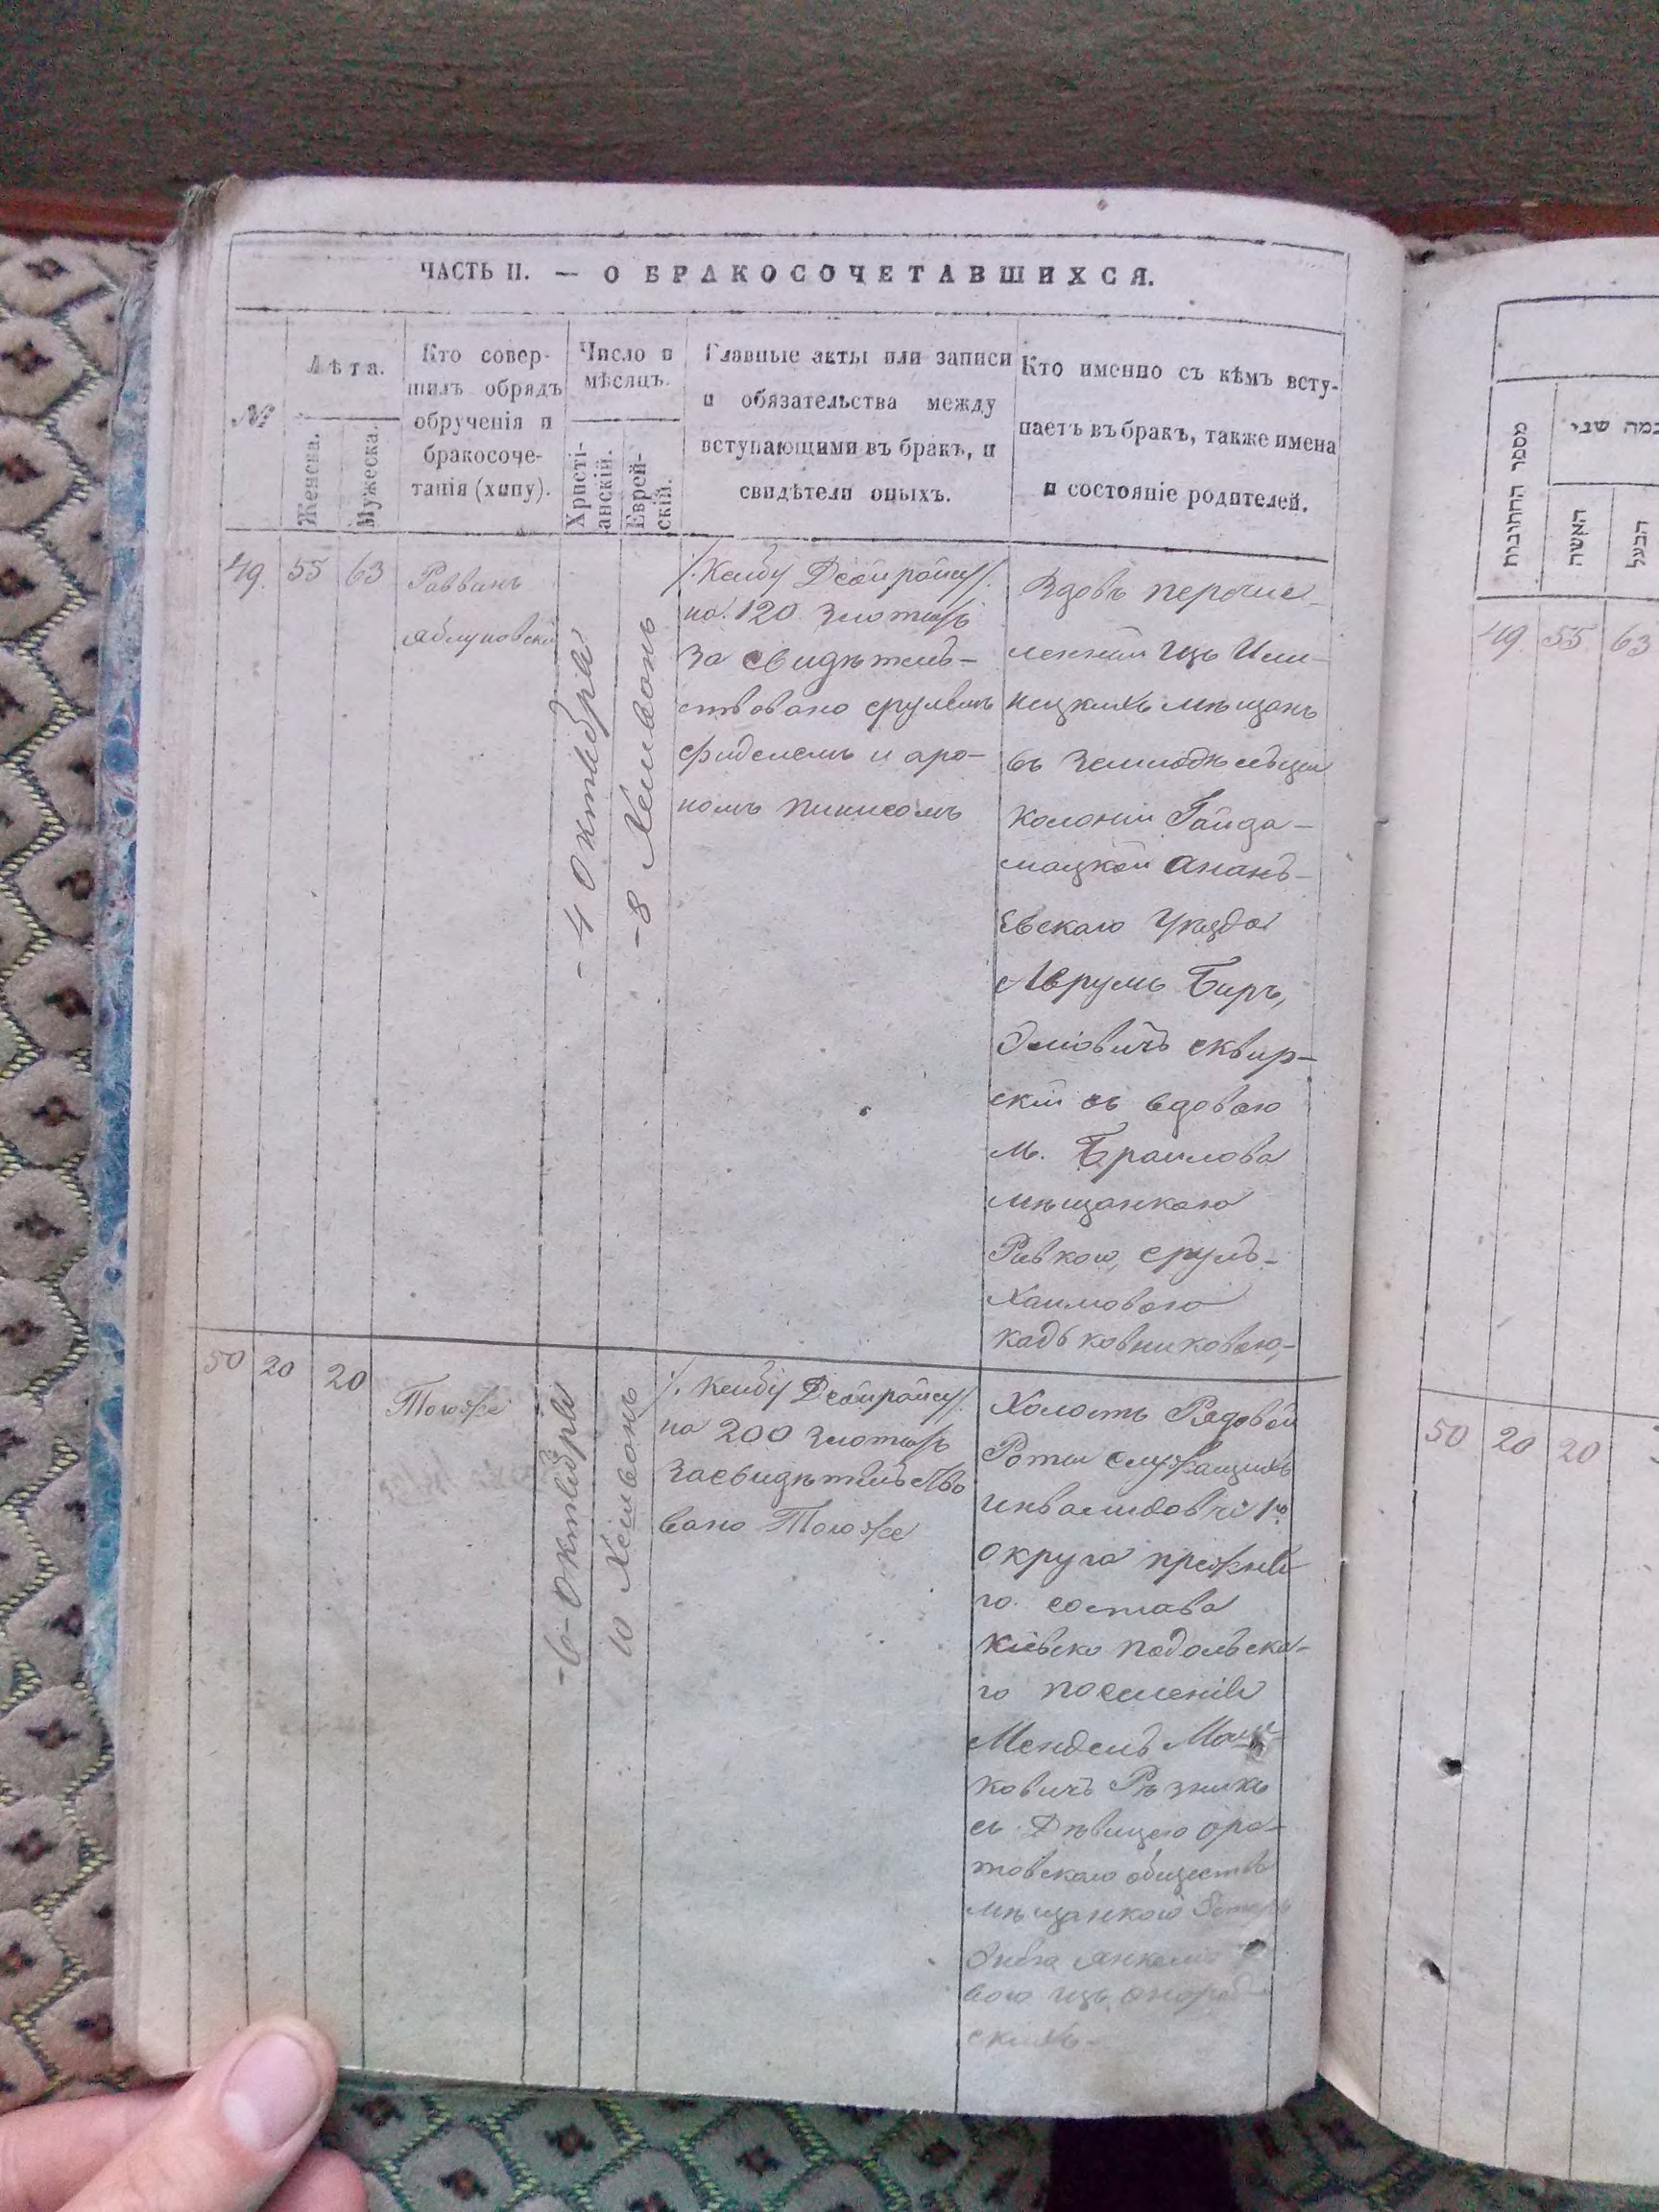 ЧАСТЬ II. — О БРАКОСОЧЕТАВШИХСЯ.
№
Лѣта.
Женска.
Мужеска.
Кто совер-
шилъ обрядъ
обрученія и
бракосоче-
танія (хупу).
Число и
мѣсяцъ.
Христі-
анскій.
Еврей-
скій.
Главные акты или записи
и обязательства между
вступающими въ бракъ, и
свидѣтели оныхъ.
Кто именно съ кѣмъ всту-
паетъ въ бракъ, также имена
и состояніе родителей.
49. 55 63
Раввинъ
Яблуновскій
- 4 Октября
- 8 Хешвонъ
на 120 злотыхъ
засвидѣтель-
ствовано Срулемъ
Фиделемъ и Аро-
номъ Пинисомъ
Вдовъ перечис-
ленный изъ Или-
нецкихъ мѣщанъ
въ земледѣльцы
колоніи Гайда-
мацкой Анань-
евскаго уѣзда
Аврумъ Беръ,
сквир-
скій съ вдовою
м. Браилова
мѣщанкою
Ривкою, Сруль-
Хаимовою
50 20 20
Тогоже
- 6 - Октября
10 Хешвонъ
на 200 злотыхъ
засвидѣтельство
вано Тогоже
Холостъ Рядовой
Роты служащихъ
инвалидовъ 1го
округа прежня
го состава
Кіевско Подольска-
го поселенія
Мендель
ковичъ Рѣзникъ
съ Дѣвицею Ора-
товскаго общества
мѣщанкою
вою изъ
скихъ -
מספר החתונות
כמה שני
האשה
הבעל
49. 55 63
50 20 20